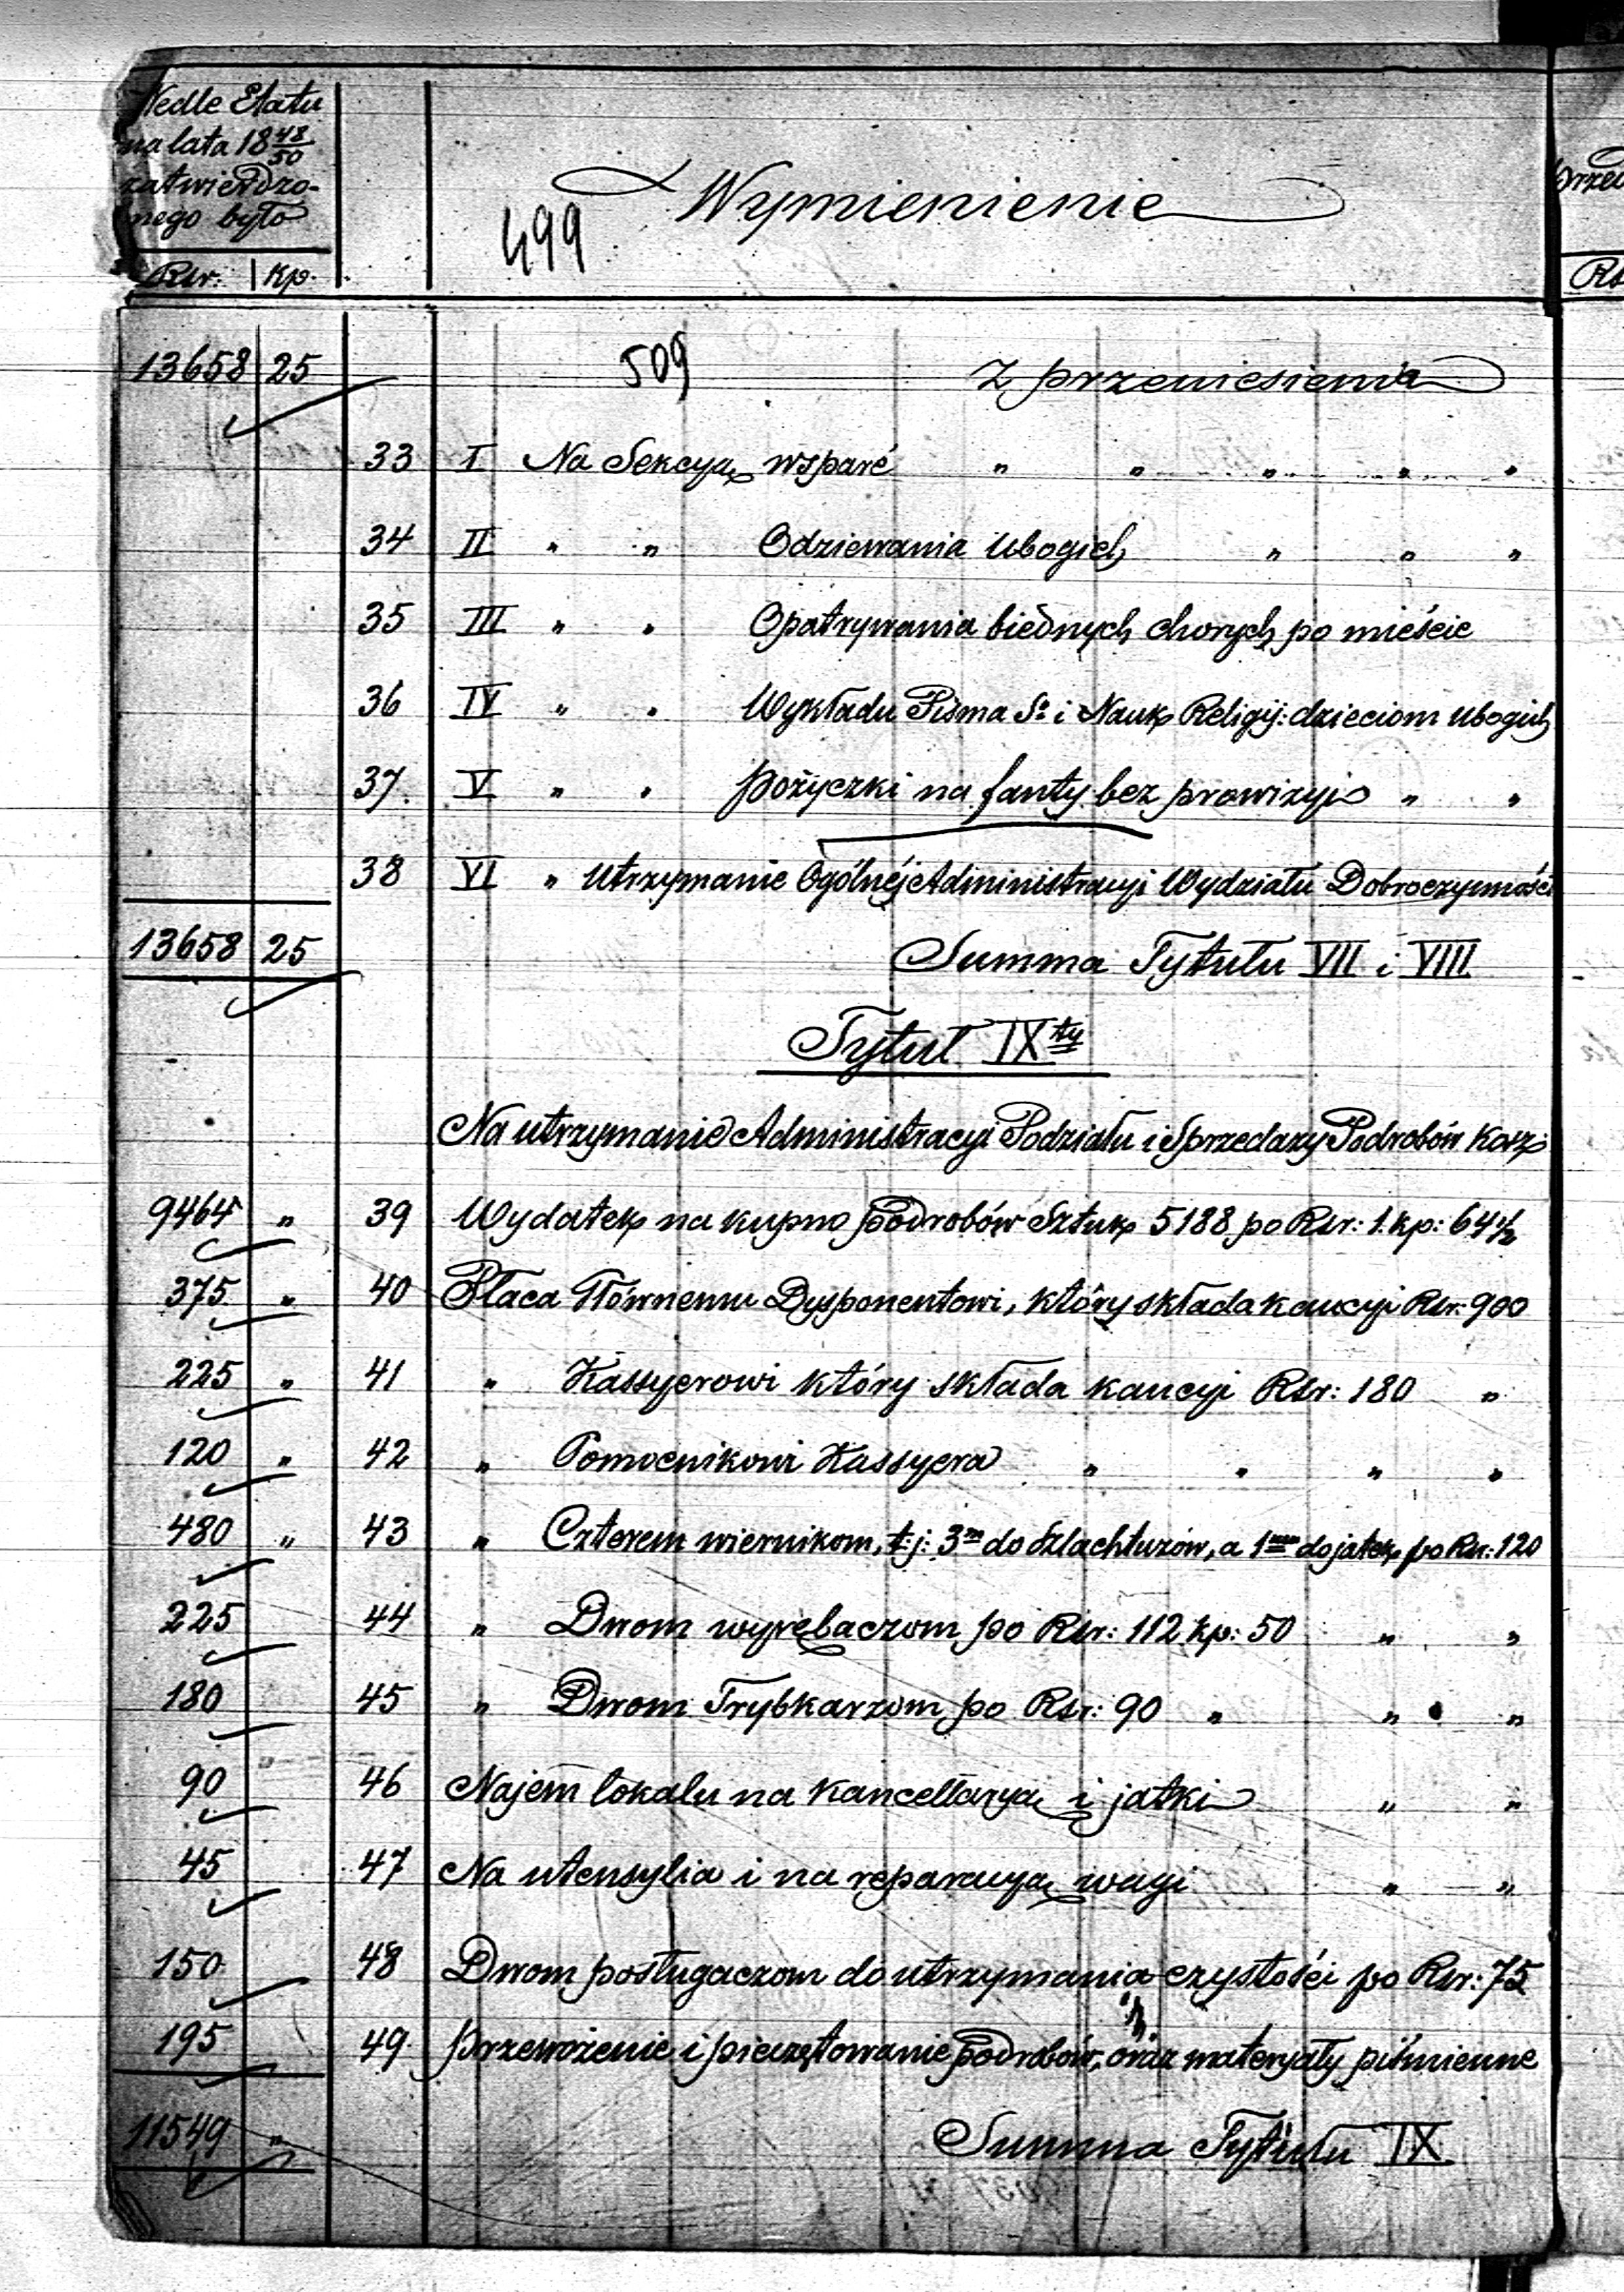 Wedle Etatu
na lata 18 48/50
zatwierdzo-
nego było
Rsr. Kp.
Wymienienie
499
509
13658 25 Z przeniesienia
33 I Na Sekcyą wsparć " " " " "
34 II " " Odziewania Ubogich " " "
35 III " " Opatrywania biednych chorych po mieście
36 IV " " Wykładu Pisma Sº i Nauk Religij: dzieciom ubogich
37. V " " pożyczki na fanty bez prowizyi " "
38 VI " Utrzymanie Ogólnéj Administracyi Wydziału Dobroczynności
13658 25 Summa Tytułu VII i VIII
Tytuł IXty
Na utrzymanie Administracyi Podziału i Sprzedaży Podrobów Kosz:
9464 " 39 Wydatek na kupno podrobów Sztuk 5188 po Rsr: 1. kp: 64½
375 " 40 Płaca Głównemu Dysponentowi, który składa kaucyi Rsr: 900
225 " 41 " Kassyerowi który składa kaucyi Rsr: 180 "
120 " 42 " Pomocnikowi Kassyera " " " "
480 " 43 " Czterem wiernikom, t:j: 3m do szlachtuzów, a 1mu do jatek, po Rsr: 120
225 44 " Dwom wyrębaczom po Rsr: 112 kp: 50 " "
180 45 " Dwom Trybkarzom po Rsr: 90 " " "
90 46 Najem lokalu na Kancellaryą i jatki " "
45 47 Na utensylia i na reparacyą wagi " "
150 48 Dwom posługaczom do utrzymania czystości po Rsr: 75
195 49 przewożenie i pieczętowanie podrobów, oraz materyały piśmienne
11549 " Summa Tytułu IX
Rs